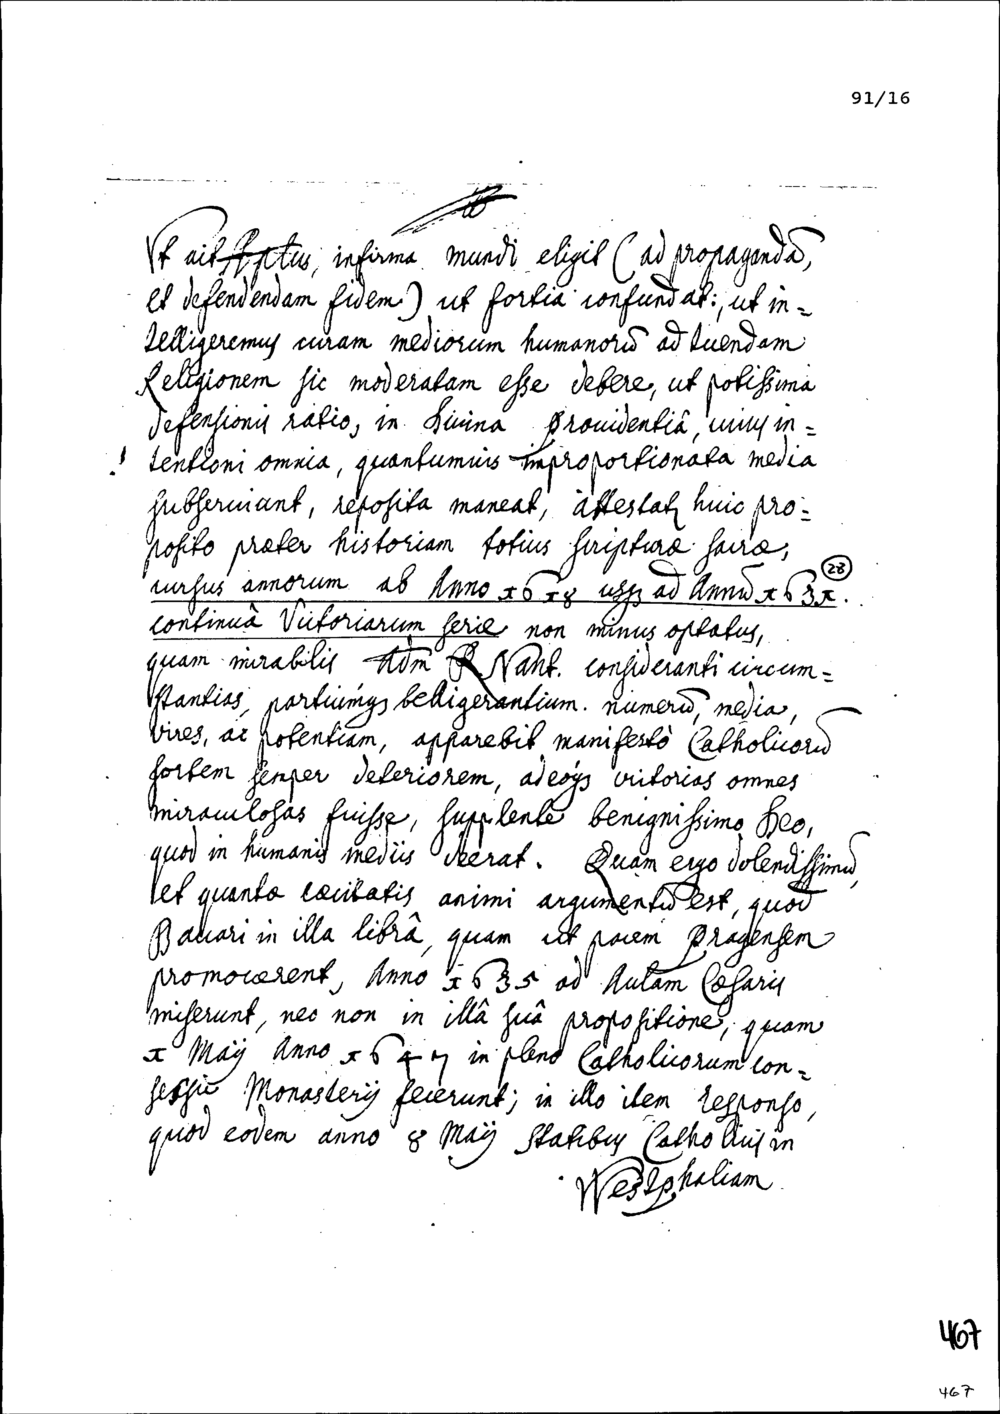 91/16
Vt ait Aptus, infirma mundi eligit (ad propagandā,
et defendendam fidem) ut fortia confundat:, ut in=
telligeremus curam mediorum humanorū ad tuendam
Religionem sic moderatam esse debere, ut potissima
defensionis ratio, in Divina Prouidentiâ, cuius in=
tentioni omnia, quantumuis improportionata media
subseruiant, reposita maneat, attestatq huic pro=
posito præter historiam totius scripturæ sacræ,
cursus annorum ab Anno 1618 usq ad Annū 1631.
28
continuâ Victoriarum serie non minus optatus,
quam mirabilis Adm R Nant. consideranti circum=
stantias, partiumq belligerantium numerū, media,
vires, ac potentiam, apparebit manifestò Catholicorū
sortem semper deteriorem, adeoq victorias omnes
miraculosas fuisse, supplente benignissimo Deo,
quod in humanis mediis deerat. Quam ergo dolendissimū,
et quantæ cæcitatis animi argumentū est, quod
Bauari in illa librâ, quam ut pacem Pragensem
promouerent, Anno 1635 ad Aulam Cæsaris
miserunt, nec non in illâ suâ propositione, quam
1 Maÿ Anno 1647 in pleno Catholicorum con=
sessu Monasterij fecerunt; in illo item responso,
quod eodem anno 8 Maÿ statibus Catholicis in
Westphaliam
467
467